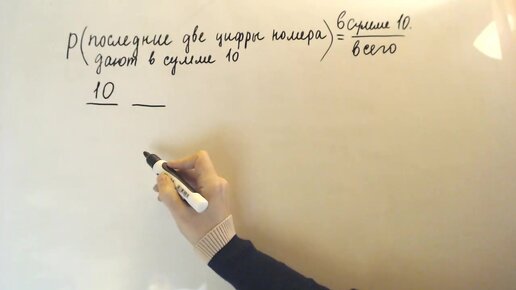 P(последние две цифры номера) = в сумме 10.
дают в сумме 10 всего
10